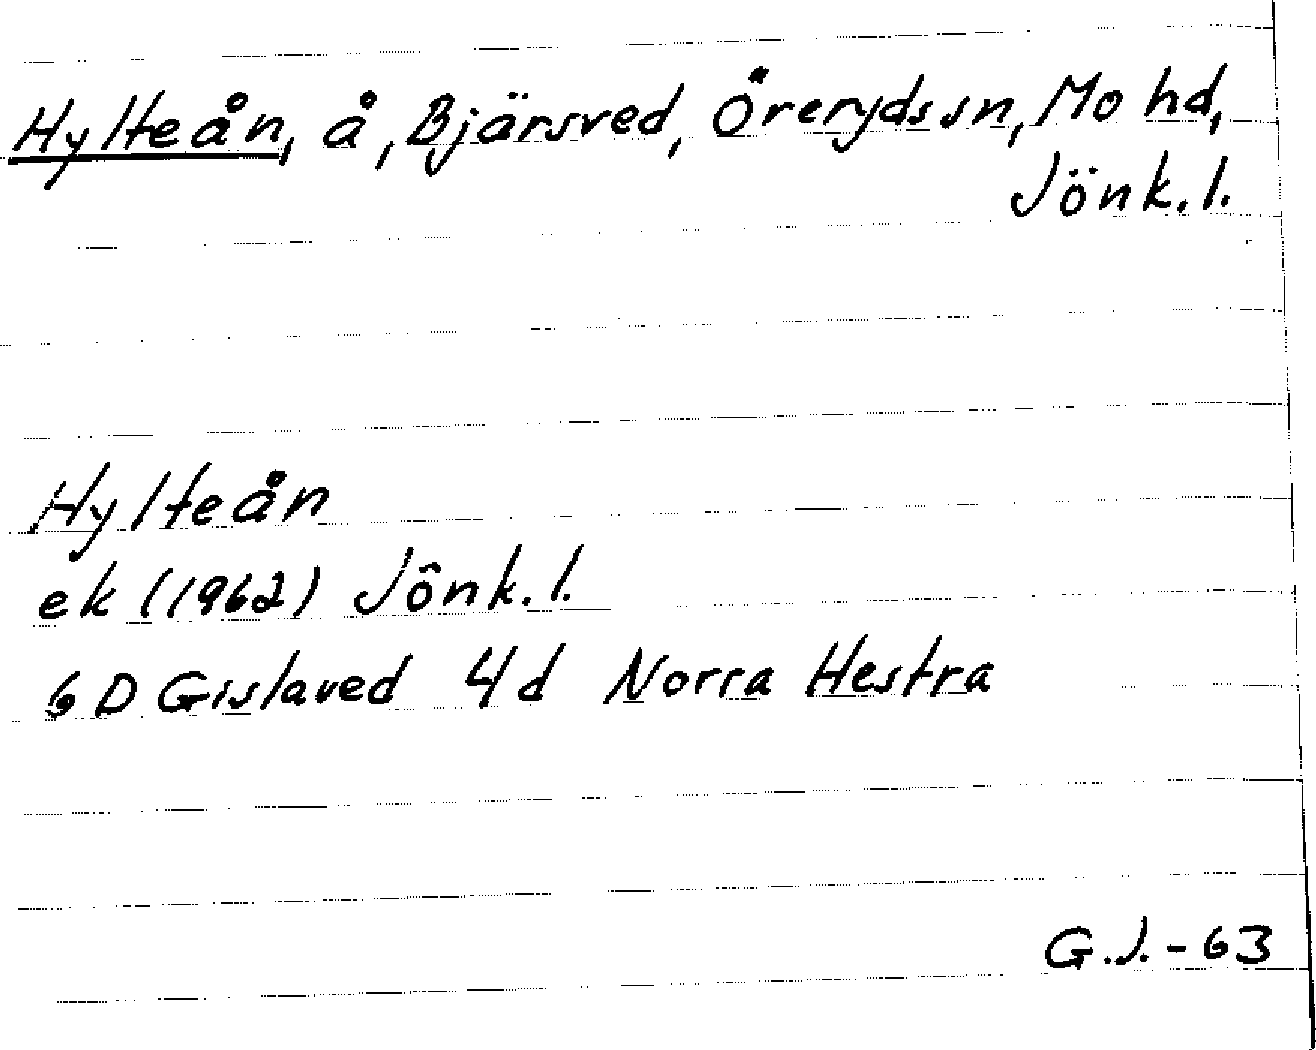 Hylteån, å, Bjärsved, Öreryds sn, Mo hd,
Jönk.l.
Hylteån
ek (1962) Jönk.l.
6 D Gislaved 4d Norra Hestra
G.J.-63